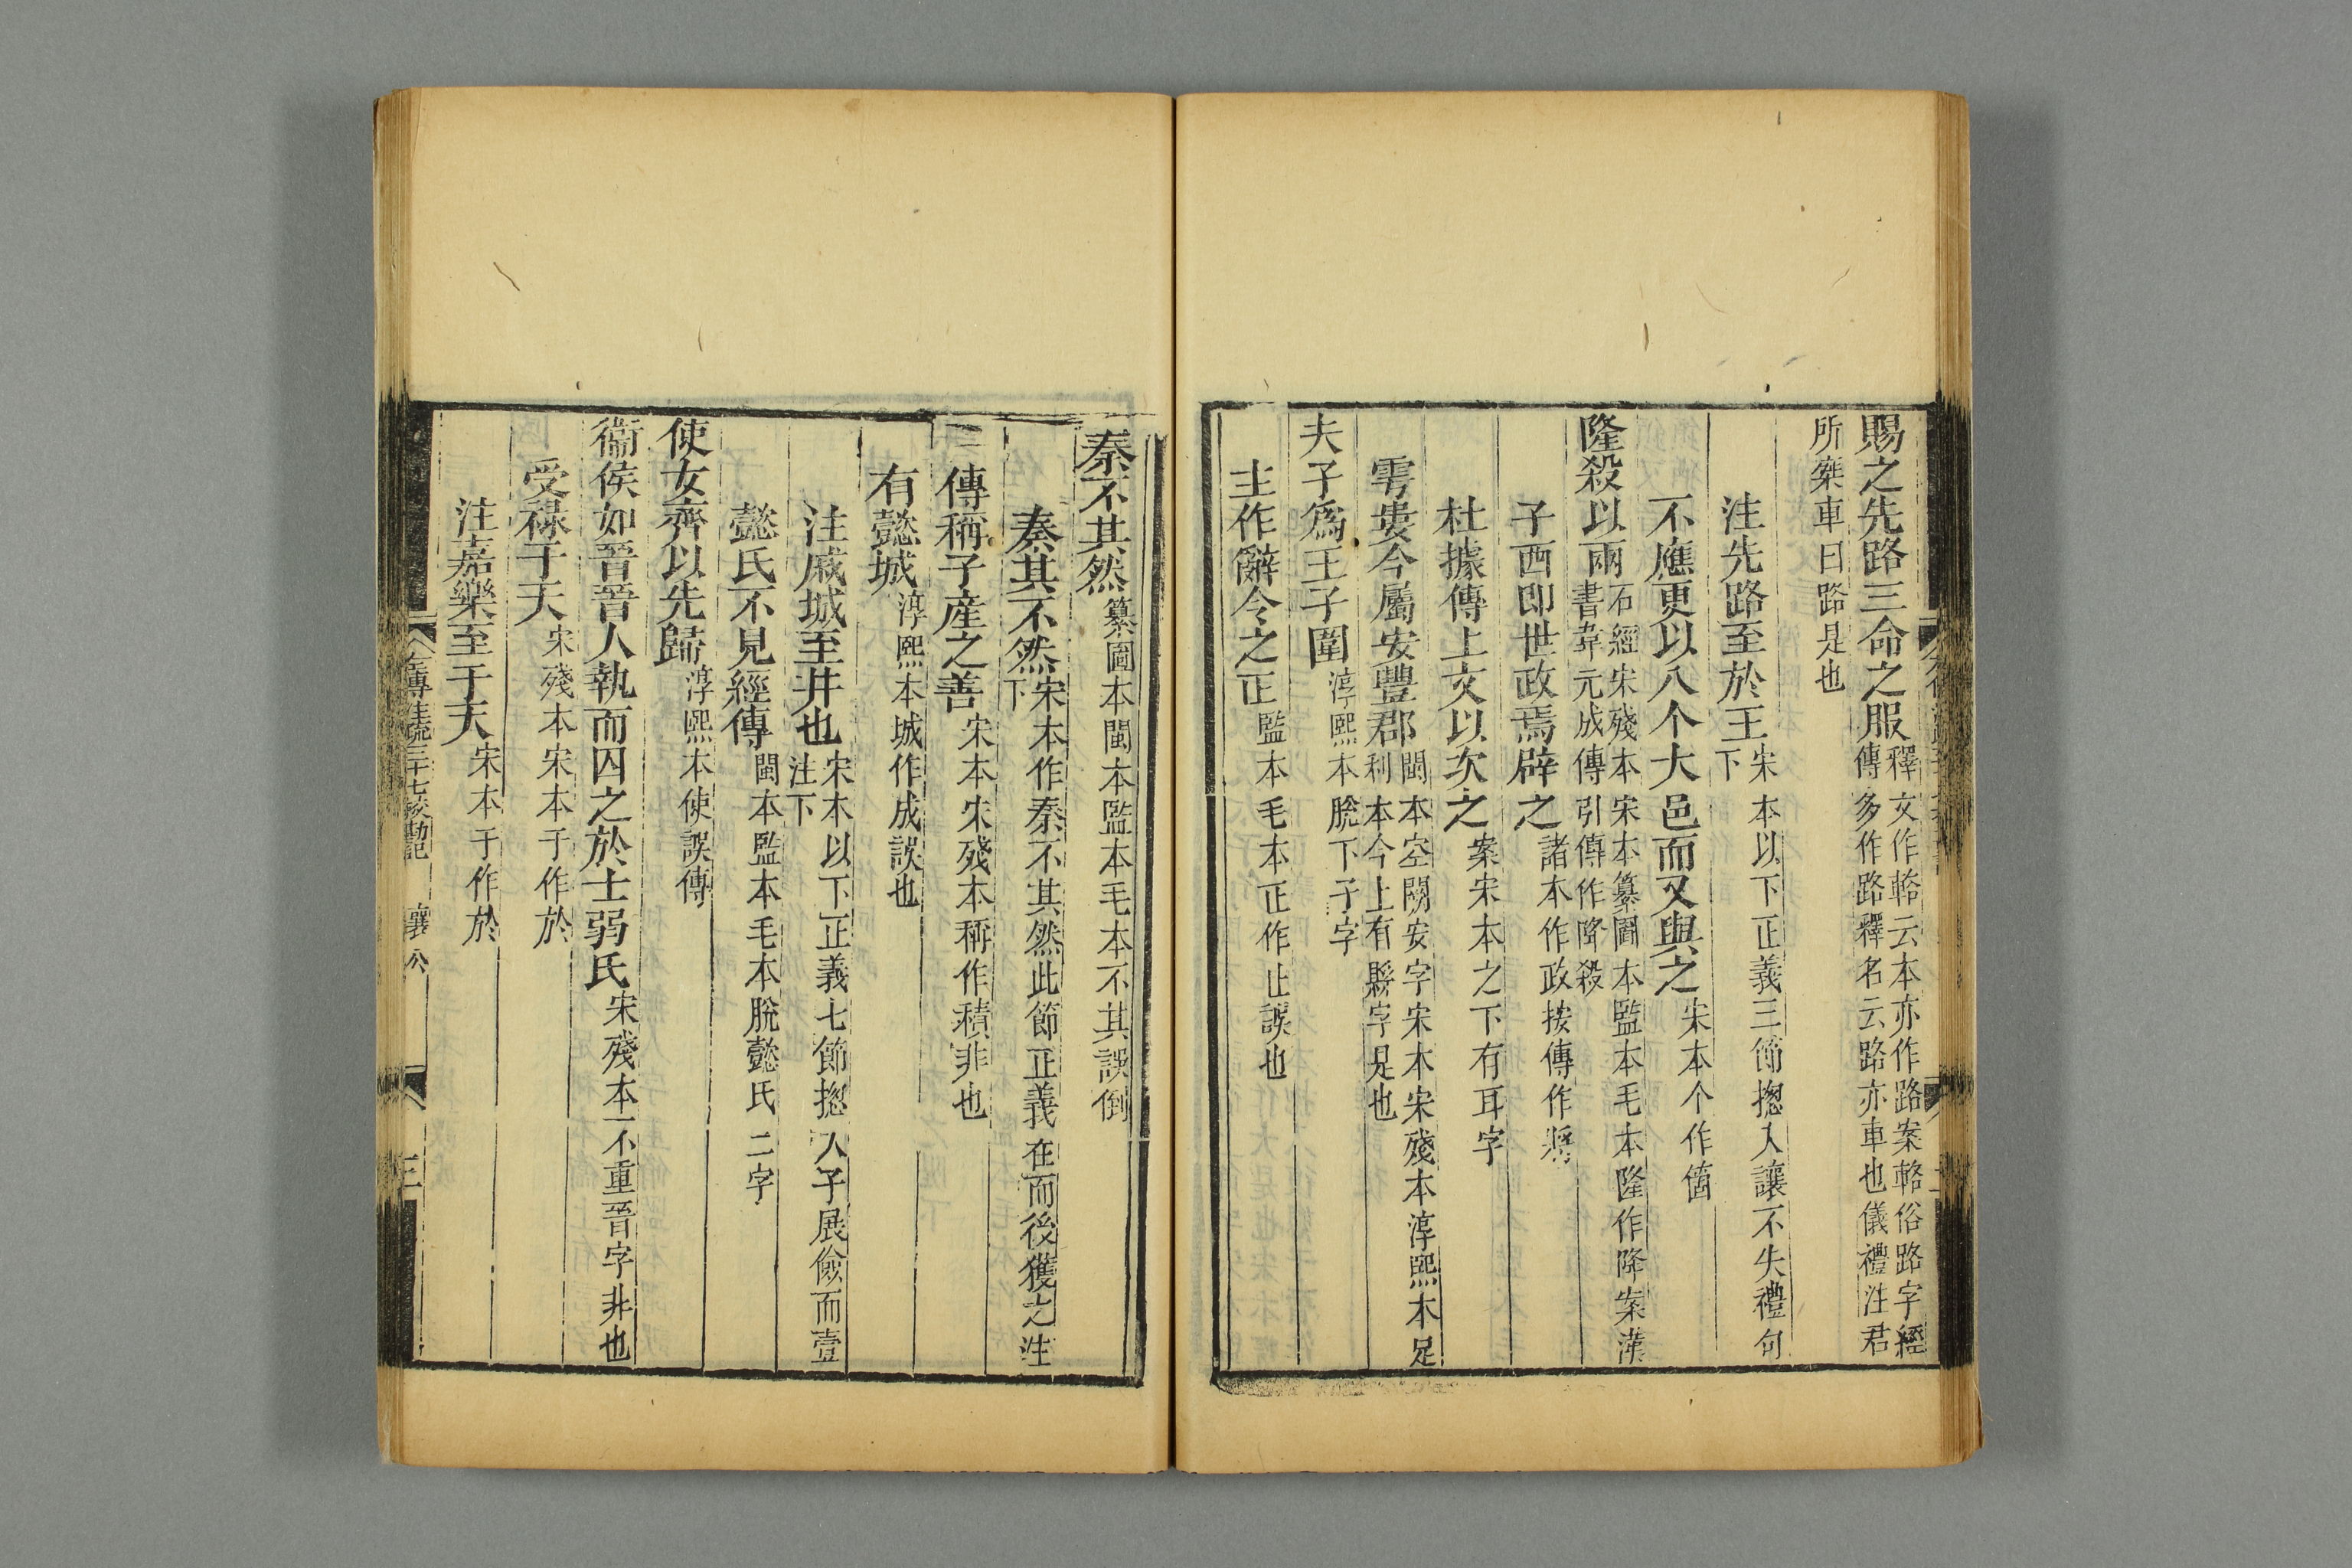 賜之先路三命之服釋文作輅云本亦作路案輅俗路字經
傳多作路釋名云路亦車也儀禮注君
所椉車曰路是也
注先路至於王宋本以下正義三節揔入讓不失禮句
下
不應更以八个大邑而又與之宋本个作箇
隆殺以兩石經宋殘本宋本纂圖本監本毛本隆作降案漢
書韋元成傳引傳作降殺
子西即世政焉辟之諸本作政按傳作將
杜據傳上文以次之案宋本之下有耳字
雩婁今屬安豐郡閩本空闕安字宋本宋殘本淳熙本足
利本今上有縣字是也
夫子爲王子圍淳熙本脫下子字
主作辭令之正監本毛本正作止誤也
秦不其然纂圖本閩本監本毛本不其誤倒
秦其不然宋本作秦不其然此節正義在而後獲之注
下
傳稱子產之善宋本宋殘本稱作積非也
有懿城淳熙本城作成誤也
注戚城至井也宋本以下正義七節揔入子展儉而壹
注下
懿氏不見經傳閩本監本毛本脫懿氏二字
使女齊以先歸淳熙本使誤傳
衞侯如晉晉人執而囚之於士弱氏宋殘本不重晉字非也
受祿于天宋殘本宋本于作於
注嘉樂至于天宋本于作於
左傳注疏三十七挍勘記 襄公 三